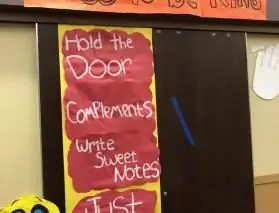 TO BE KIND
Hold the
Door
Complements
Write
Sweet
Notes
Just